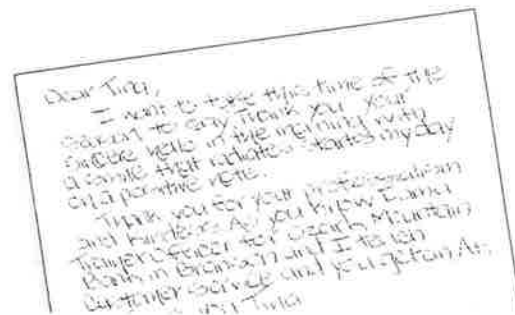 Dear Tina,
I want to take this time of the
season to say Thank you. Your
sincere hello in the morning with
a smile that radiates starts my day
on a positive note.
Thank you for your professionalism
and kindness. As you know I am a
Trainer officer for Ozark Mountain
Bank in Branson and I teach
customer service and you get an A+.
you Tina